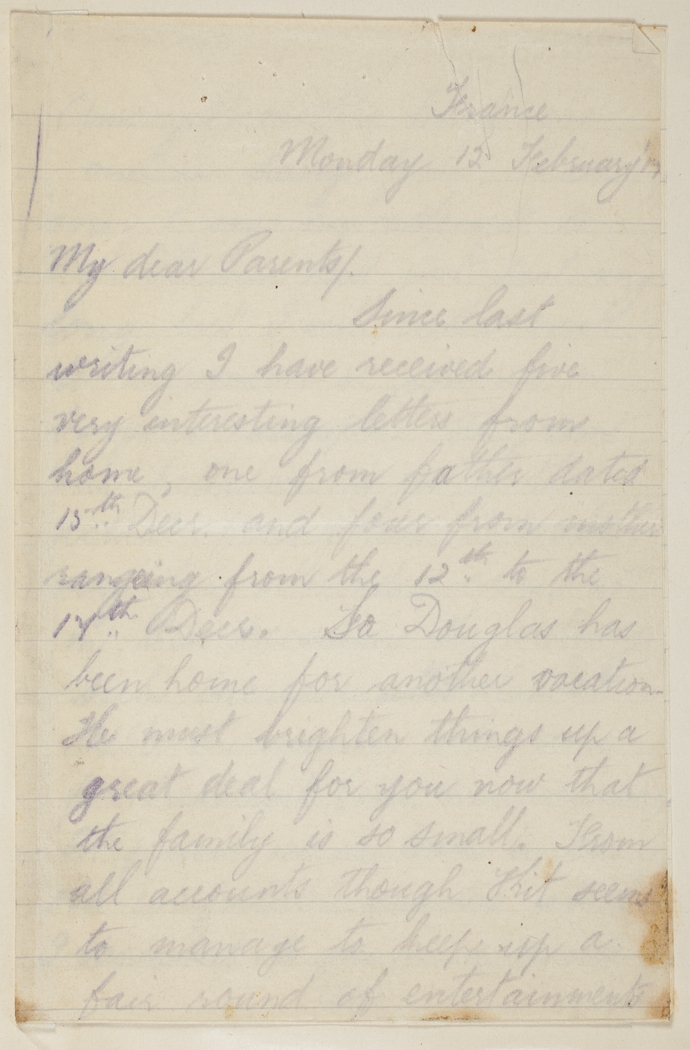 France
Monday 12 February '17
My dear Parents/.
Since last
writing I have received five
very interesting letters from
home, one from father dated
15th Decr. and four from mother
rangeing from the 12th to the
17th Decr. So Douglas has
been home for another vacation.
He must brighten things up a
great deal for you now that
the family is so small. From
all accounts though Kit seems
to manage to keep up a
fair round of entertainments